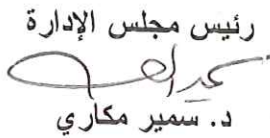 رئيس مجلس الإدارة
د. سمير مكاري